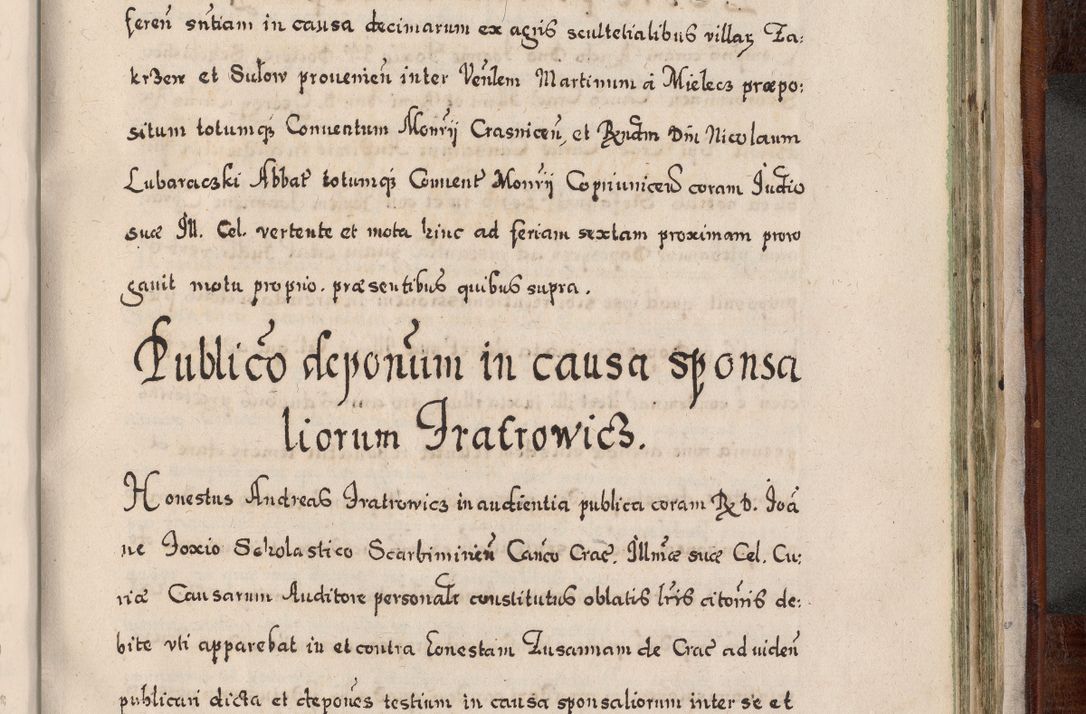 feren̄ sn̄tiam in causa decimarum ex agris scultetialibus villaꝝ Za:
krzew et Sulow prouenien̄ inter Ven̄lem Martinum á Mielecz præpo:
situm totumqꝫ Conuentum Monr̄ij Crasnicen̄, et Rn̄dm Dn̄i Nicolaum
Lubaraczki Abbat̄ totumqꝫ Conuent̄ Monr̄ij Copriunicen̄ coram Judicio
suæ Ill. Cel. vertente et mota hinc ad feriam sextam proximam proro
gauit motu proprio. præsentibus quibus supra.
Publicō deponūum in causa sponsa
liorum Iratrowicz.
Honestus Andreas Iratrowicz in audientia publica coram R D. Joā
ne Foxio Scholastico Scarbimirien̄ Can̄co Crac̄. Illm̄æ suæ Cel. Cu:
riæ Causarum Auditore personalr̄ constitutus oblatis lr̄is citōnis de:
bite vti apparebat in et contra honestam Zusannam de Crac̄ ad viden̄
publicari dicta et depōnes testium in causa sponsaliorum inter se et